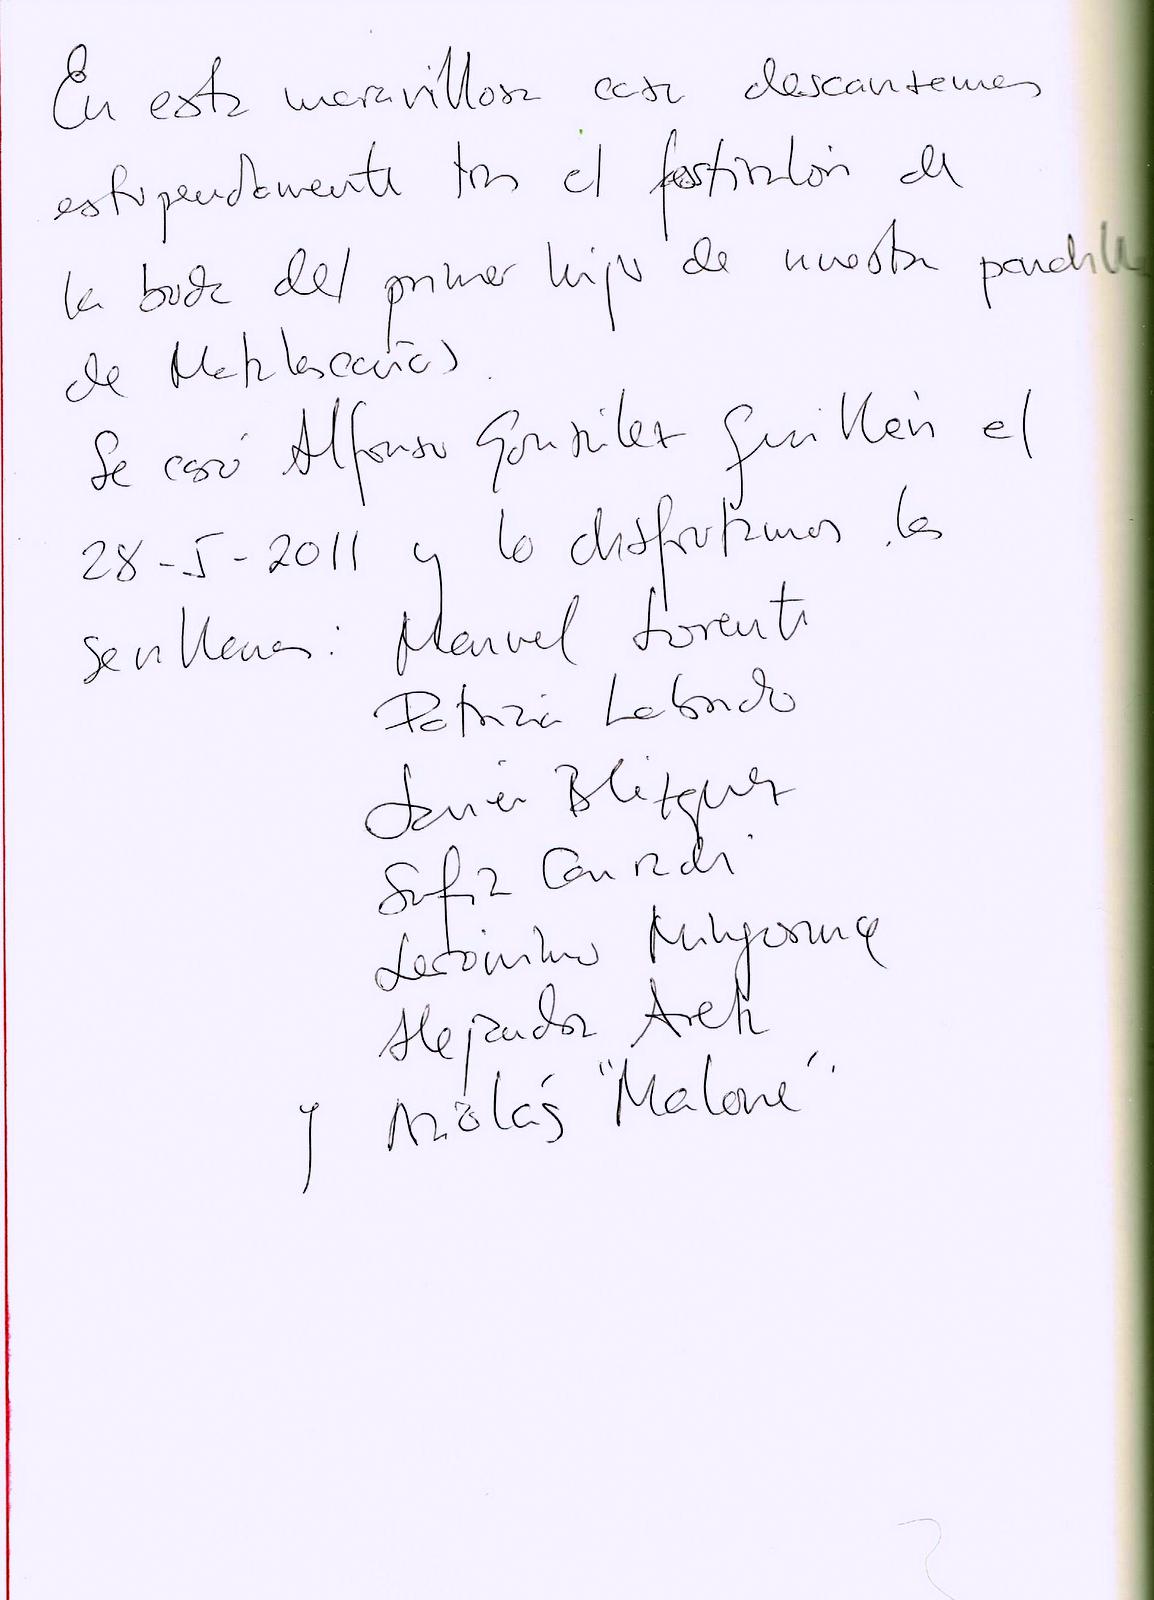 En esta maravillosa casa descansamos
estupendamente tras el festivalón de
la boda del primer hijo de nuestra pandilla
de Matalascañas.
Se casó Alfonso González Guillén el
28-5-2011 y lo disfrutamos los
sevillanos: Manuel Lorente
Patrizia Labordo
Javier Blázquez
Sofía Conradi
Jerónimo
Alejandra
y Nicolás "Malone".